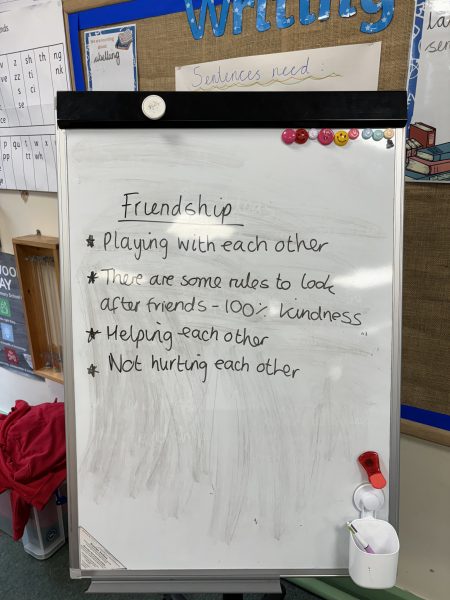 Writing
Sentences need:
sh th
ng
nk
Friendship
* Playing with each other
* There are some rules to look
after friends - 100% kindness
* Helping each other
* Not hurting each other